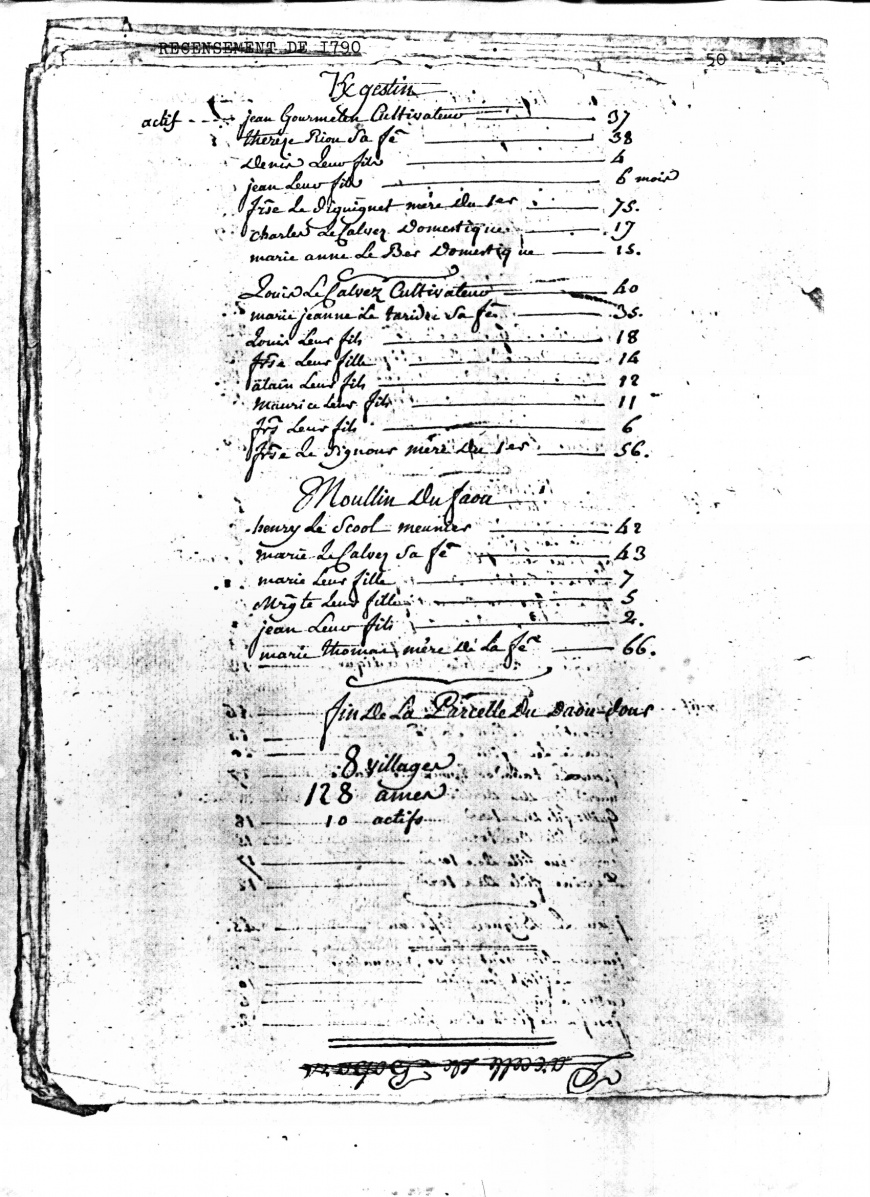 RECENSEMENT DE 1790
50
gestin
actif jean Gourmelen Cultivateur 37
thereze Riou Sa fe 38
Denis Leur fils 4
jean Leur fils 6 mois
frse Le Diquiguet mere Du 1er 75.
charles Le Calvez Domestique 17
marie anne Le Ber Domestique 15.
Louis Le Calvez Cultivateur 40
marie jeanne Le Sa fe 35.
Louis Leur fils 18
frse Leur fille 14
alain Leur fils 12
Maurice Leur fils 11
frs Leur fils 6
frse Le Dignour mere Du 1er 56.
Moullin Du faou
henry Le Scool meunier 42
marie Le Calvez Sa fe 43
marie Leur fille 7
Mrgte Leur fille 5
jean Leur fils 2.
marie thomas mere De La fe 66.
fin De La Parcelle Du Daou-dour
8 villages
128 ames
10 actifs